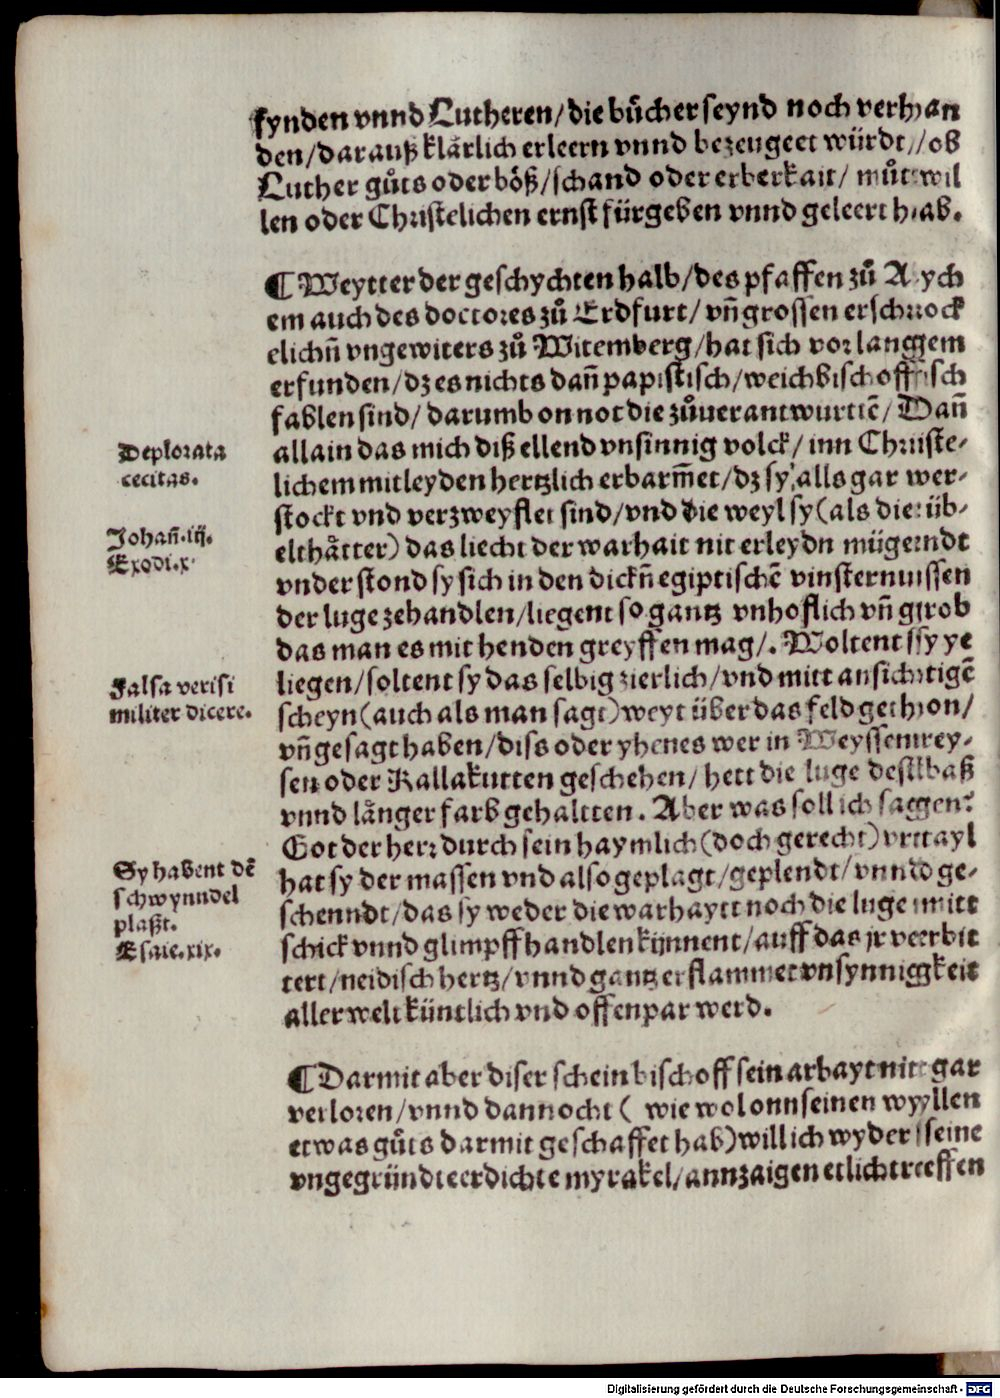 fynden vnnd Lutheren/die bůcher seynd noch verhan
den/darauß klårlich erleern vnnd bezeugeet würdt//ob
Luther gůts oder böß/schand oder erberkait/ můtwil
len oder Christelichen ernst fürgeben vnnd geleert hab.
¶ Weytter der geschychten halb/des pfaffen zů Aych
em auch des doctores zů Erdfurt/vñ grossen erschrock
elichñ vngewiters zů Witemberg/hat sich vor langgem
erfunden/dz es nichts dañ papistisch/weichbischoffisch
fablen sind/darumb on not die zůuerantwurtẽ/Dañ
allain das mich diß ellend vnsinnig volck/inn Christe-
lichem mitleyden hertzlich erbarm̃et/dz sy alls gar wer-
Deplorata
cecitas.
stockt vnd verzweyflet sind/vnd die weyl sy(als die üb-
elthåtter)das liecht der warhait nit erleydn mügendt
Johañ.iij.
Exodi.x
vnderstond sy sich in den dickñ egiptischẽ vinsternussen
der luge zehandlen/liegent so gantz vnhoflich vñ grob
das man es mit henden greyffen mag/. Woltent sy ye
liegen/soltent sy das selbig zierlich/vnd mitt ansichtigẽ
scheyn(auch als man sagt)weyt über das feld gethon/
Falsa verisi
militer dicere.
vñ gesagt haben/diss oder yhenes wer in Weyssenrey-
sen oder Kallakutten geschehen/hett die luge destbaß
vnnd långer farb gehaltten. Aber was soll ich saggen?
Got der herr durch sein haymlich(doch gerecht)vrttayl
hat sy der massen vnd also geplagt/geplendt/vnnd ge-
schenndt/das sy weder die warhaytt noch die luge mitt
schick vnnd glimpff handlen kynnent/auff das jr veerbit
tert/neidisch hertz/vnnd gantz erflammet vnsynniggkeit
aller welt küntlich vnd offenpar werd.
Sy habent dẽ
schwynndel
plaßt.
Esaie.xix.
¶ Darmit aber diser schein bischoff sein arbayt nitt gar
verloren/vnnd dannocht ( wie wol onn seinen wyllen
etwas gůts darmit geschaffet hab)will ich wyder seine
vngegründte erdichte myrakel/annzaigen etlich treeffen
Digitalisierung gefördert durch die Deutsche Forschungsgemeinschaft - DFG